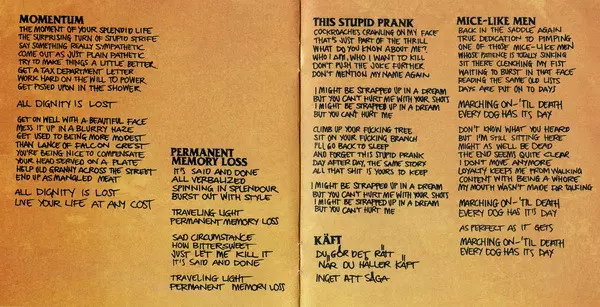 MOMENTUM
THE MOMENT OF YOUR SPLENDID LIFE
THE SURPRISING TURN OF STUPID STRIFE
SAY SOMETHING REALLY SYMPATHETIC
COME OUT AS JUST PLAIN PATHETIC
TRY TO MAKE THINGS A LITTLE BETTER
GET A TAX DEPARTMENT LETTER
WORK HARD ON THE WILL TO POWER
GET PISSED UPON IN THE SHOWER
ALL DIGNITY IS LOST
GET ON WELL WITH A BEAUTIFUL FACE
MESS IT UP IN A BLURRY HAZE
GET USED TO BEING MORE MODEST
THAN LANCE OF FALCON CREST
YOU'RE BEING NICE TO COMPENSATE
YOUR HEAD SERVED ON A PLATE
HELP OLD GRANNY ACROSS THE STREET
END UP AS MANGLED MEAT
ALL DIGNITY IS LOST
LIVE YOUR LIFE AT ANY COST
PERMANENT
MEMORY LOSS
IT'S SAID AND DONE
ALL VERBALIZED
SPINNING IN SPLENDOUR
BURST OUT WITH STYLE
TRAVELING LIGHT
PERMANENT MEMORY LOSS
SAD CIRCUMSTANCE
HOW BITTERSWEET
JUST LET ME KILL IT
IT'S SAID AND DONE
TRAVELING LIGHT
PERMANENT MEMORY LOSS
THIS STUPID PRANK
COCKROACHES CRAWLING ON MY FACE
THAT'S JUST PART OF THE THRILL
WHAT DO YOU KNOW ABOUT ME?
WHO I AM, WHO I WANT TO KILL
DON'T PUSH THE JOKE FURTHER
DON'T MENTION MY NAME AGAIN
I MIGHT BE STRAPPED UP IN A DREAM
BUT YOU CAN'T HURT ME WITH YOUR SHOTS
I MIGHT BE STRAPPED UP IN A DREAM
BUT YOU CAN'T HURT ME
CLIMB UP YOUR FUCKING TREE
SIT ON YOUR FUCKING BRANCH
I'LL GO BACK TO SLEEP
AND FORGET THIS STUPID PRANK
DAY AFTER DAY, THE SAME STORY
ALL THAT SHIT IS YOURS TO KEEP
I MIGHT BE STRAPPED UP IN A DREAM
BUT YOU CAN'T HURT ME WITH YOUR SHOTS
I MIGHT BE STRAPPED UP IN A DREAM
BUT YOU CAN'T HURT ME
KÄFT
DU GÖR DET RÄTT
NÄR DU HÅLLER KÄFT
INGET ATT SÄGA
MICE-LIKE MEN
BACK IN THE SADDLE AGAIN
TRUE DEDICATION TO PIMPING
ONE OF THOSE MICE-LIKE MEN
WHOSE PATIENCE IS TOTALLY SINKING
SIT THERE CLENCHING MY FIST
WAITING TO BURST IN THAT FACE
READING THE SAME OLD LISTS
DAYS ARE PUT ON TO DAYS
MARCHING ON-'TIL DEATH
EVERY DOG HAS IT'S DAY
DON'T KNOW WHAT YOU HEARD
BUT I'M STILL SITTING HERE
MIGHT AS WELL BE DEAD
THE END SEEMS QUITE CLEAR
I DON'T MOVE ANYMORE
LOYALTY KEEPS ME FROM WALKING
CONTENT WITH BEING A WHORE
MY MOUTH WASN'T MADE FOR TALKING
MARCHING ON-'TIL DEATH
EVERY DOG HAS IT'S DAY
AS PERFECT AS IT GETS
MARCHING ON-'TIL DEATH
EVERY DOG HAS IT'S DAY